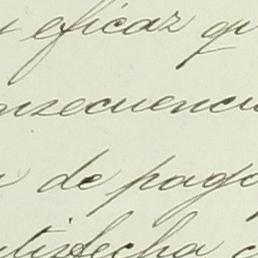 eficaz qu
nsecuencia
de pago
atisfecha